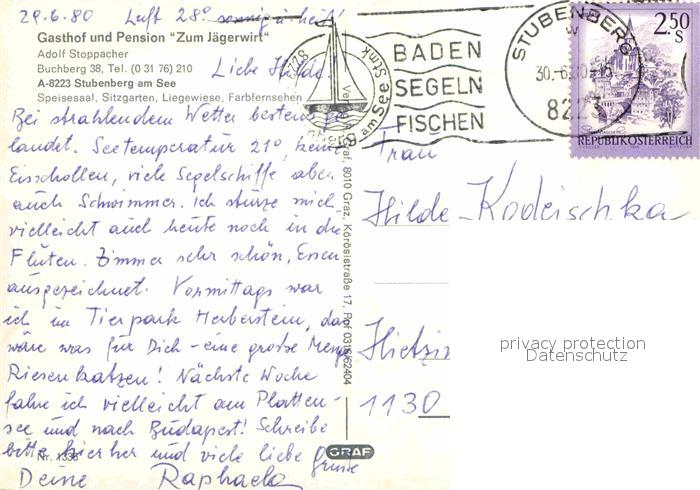 29.6.80 Luft 28° sonnig u. heiß!
Gasthof und Pension "Zum Jägerwirt"
Adolf Stoppacher
Buchberg 38, Tel. (0 31 76) 210
A-8223 Stubenberg am See
Speisesaal, Sitzgarten, Liegewiese, Farbfernsehen
Liebe Hilde!
Bei strahlendem Wetter bestens ge-
landet. Seetemperatur 21°, keine
Eisschollen, viele Segelschiffe aber
auch Schwimmer. Ich stürze mich
vielleicht auch heute noch in die
Fluten. Zimmer sehr schön, Essen
ausgezeichnet. Vormittags war
ich im Tierpark Herberstein, das
wäre was für Dich - eine große Menge
Riesenkatzen! Nächste Woche
fahre ich vielleicht am Platten-
see und nach Budapest! Schreibe
bitte hierher und viele liebe Grüße
Nr. 1336
Deine Raphaela
8223
am See Stmk
BADEN
SEGELN
FISCHEN
STUBENBERG
30.-6.80-15
8223
2.50
S
REPUBLIK ÖSTERREICH
Graf, 8010 Graz, Körösistraße 17, Ruf 0316/62404
GRAF
Frau
Hilde Kodeischka
1130
privacy protection
Datenschutz